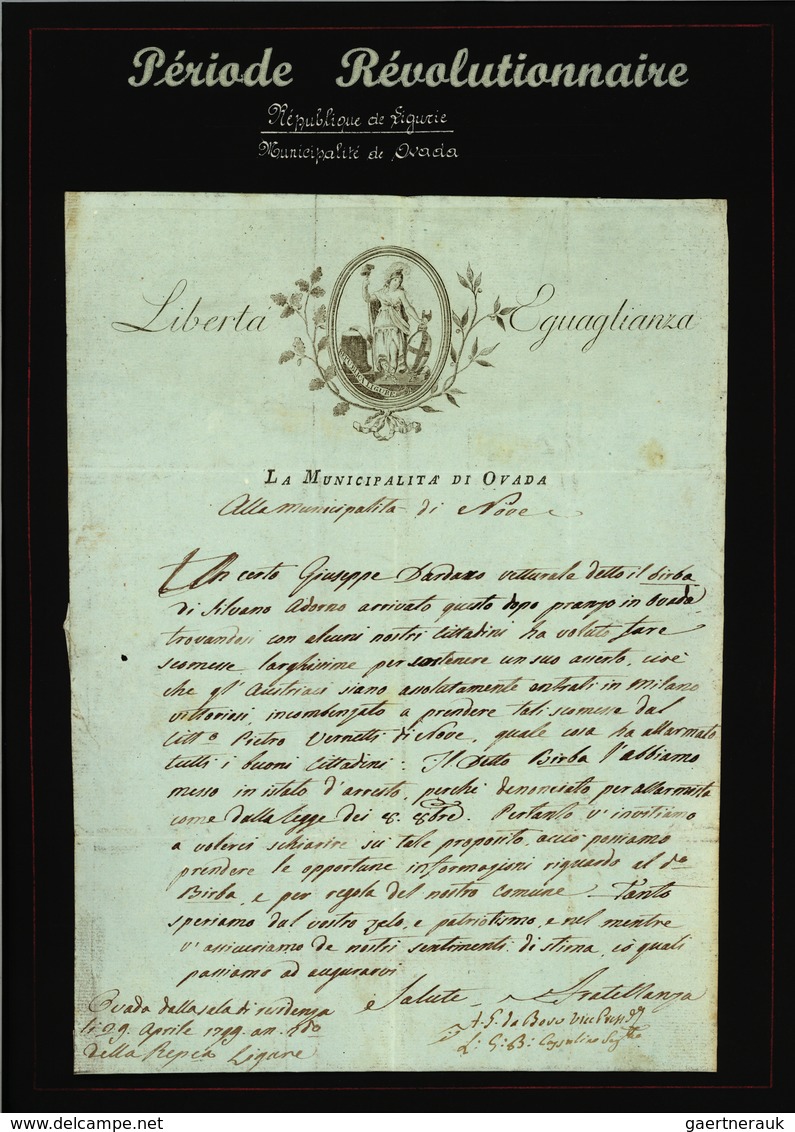 Période Révolutionnaire
République de Ligurie
Municipalité de Ovada
Libertà Eguaglianza
REPUBBLICA LIGURE
LA MUNICIPALITÀ DI OVADA
Alla Municipalità di Nove
Un certo Giuseppe Dardano vetturale detto il Birba
di Silvano Adorno arrivato questo dopo pranzo in Ovada
trovandosi con alcuni nostri Cittadini ha voluto fare
scomesse larghissime per sostenere un suo asserto, cioè
che gl' Austriaci siano assolutamente entrati in Milano
vittoriosi, incombenzato a prendere tali scomesse dal
Citt.o Pietro Vernetti di Nove, quale cosa ha allarmato
tutti i buoni Cittadini: Il Detto Birba l'abbiamo
messo in istato d'arresto, perchè denonciato per allarmista
come dalla legge dei 8. 8bre. Pertanto v'invitiamo
a volerci schiarire su tale proposito, acciò possiamo
prendere le opportune informazioni riguardo al d.o
Birba, e per regola del nostro comune. Tanto
speriamo dal vostro zelo, e patriotismo, e nel mentre
v'assicuriamo de nostri sentimenti di stima, co quali
passiamo ad augurarvi
Salute e Fratellanza
Ovada dalla sala di residenza
li 29. Aprile 1799. an. 2do
della Repca Ligure